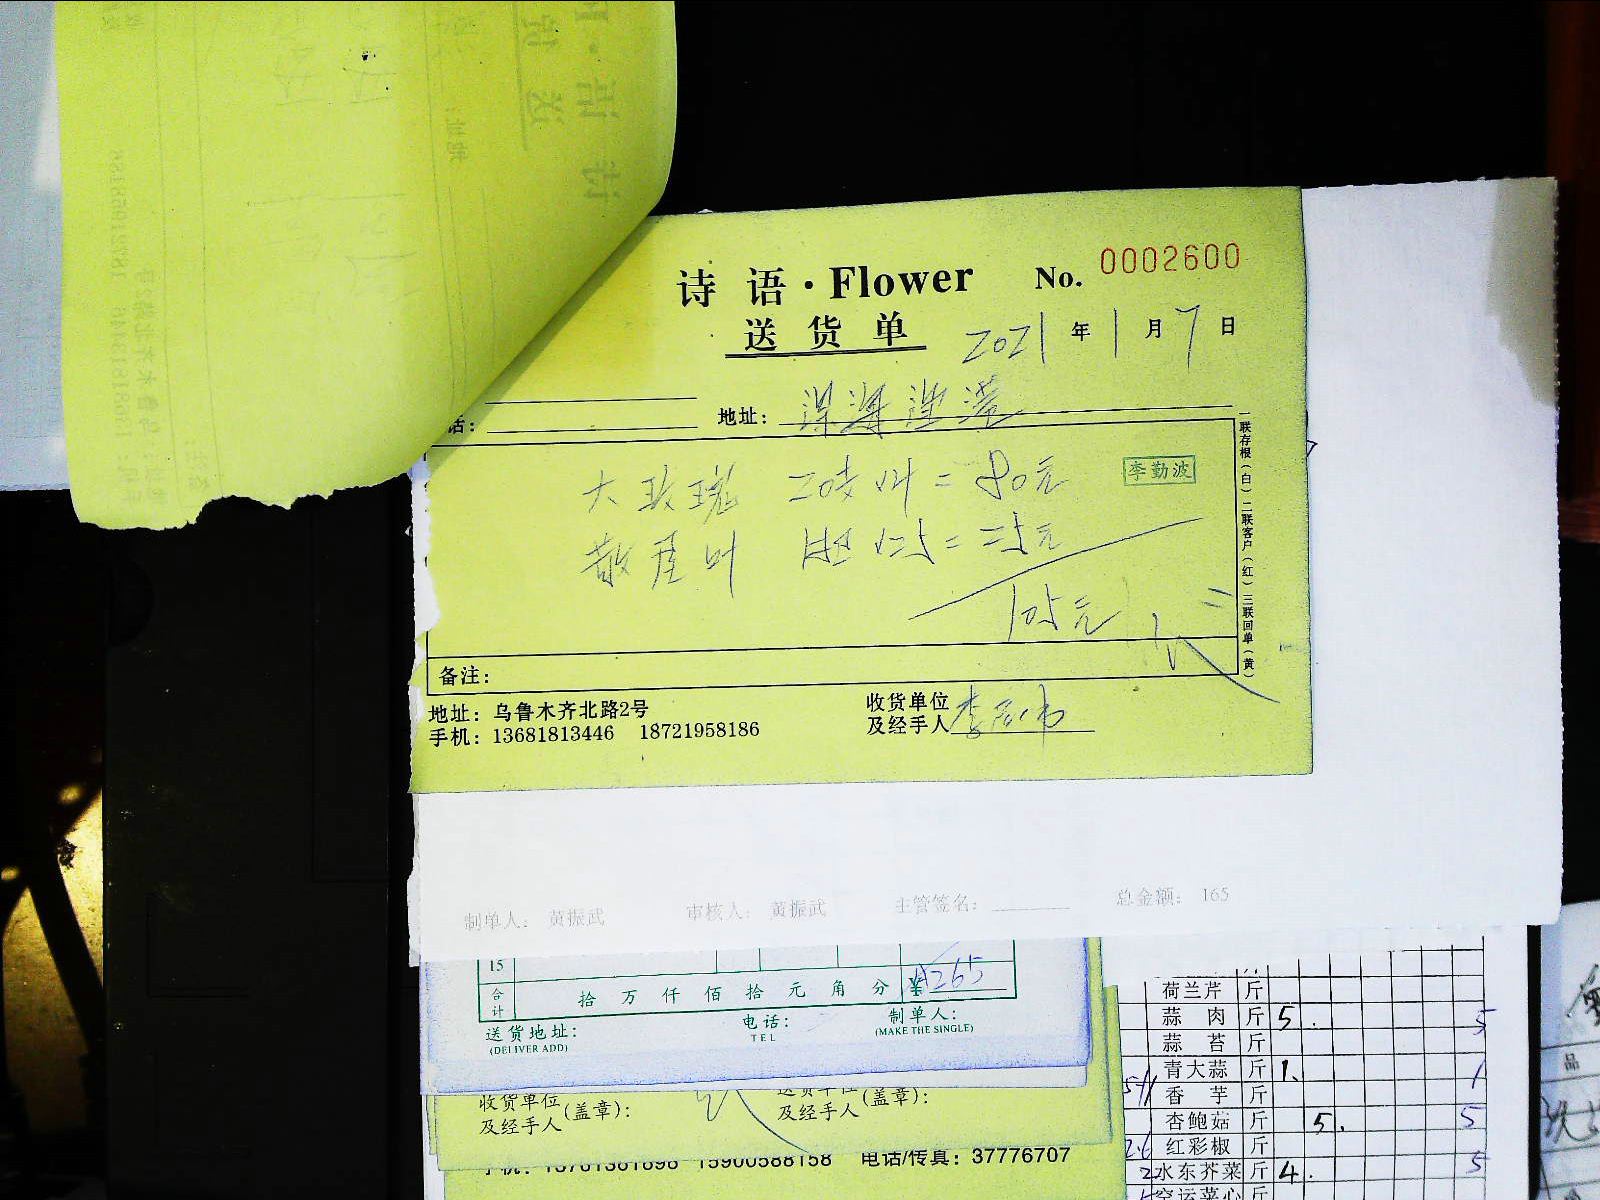 诗 语 · Flower No. 0002600
送 货 单 2021 年 1 月 7 日
话: 地址:
大玫瑰 20支 x4 = 80元 李勤波
散尾叶 x25 = 25元
105元
一联存根(白)二联客户(红)三联回单(黄)
备注:
地址: 乌鲁木齐北路2号
手机: 13681813446 18721958186
收货单位
及经手人
制单人: 黄振武 审核人: 黄振武 主管签名: 总金额: 165
15
合计 拾 万 仟 佰 拾 元 角 分 ¥ 265
送货地址: 电话: 制单人:
(DELIVER ADD) TEL (MAKE THE SINGLE)
收货单位 (盖章): 送货单位 (盖章):
及经手人 及经手人
手机: 13761381698 15900588158 电话/传真: 37776707
荷兰芹 斤
蒜 肉 斤 5. 5
蒜 苔 斤
青大蒜 斤 1. 1
香 芋 斤
杏鲍菇 斤 5. 5
红彩椒 斤
水东芥菜 斤 4. 5
空运菜心 斤
品